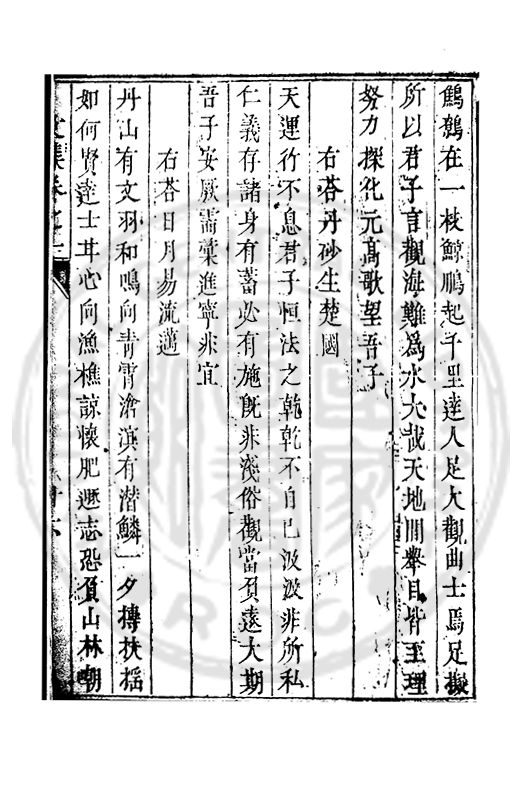 鷦鷯在一枝鯨鵬起千里達人足大觀曲士焉足擬
所以君子言觀海難為水大哉天地間舉目皆至理
努力探化元高歌望吾子
右荅丹砂生楚國
天運行不息君子恒法之乾乾不自已汲汲非所私
仁義存諸身有蓄必有施旣非淺俗觀當負遠大期
吾子安厥需藥進寧非宜
右荅日月易流邁
丹山有文羽和鳴向青霄滄溟有潛鱗一夕摶扶搖
如何賢達士甘心向漁樵諒懷肥遯志恐負山林朝
文集卷之